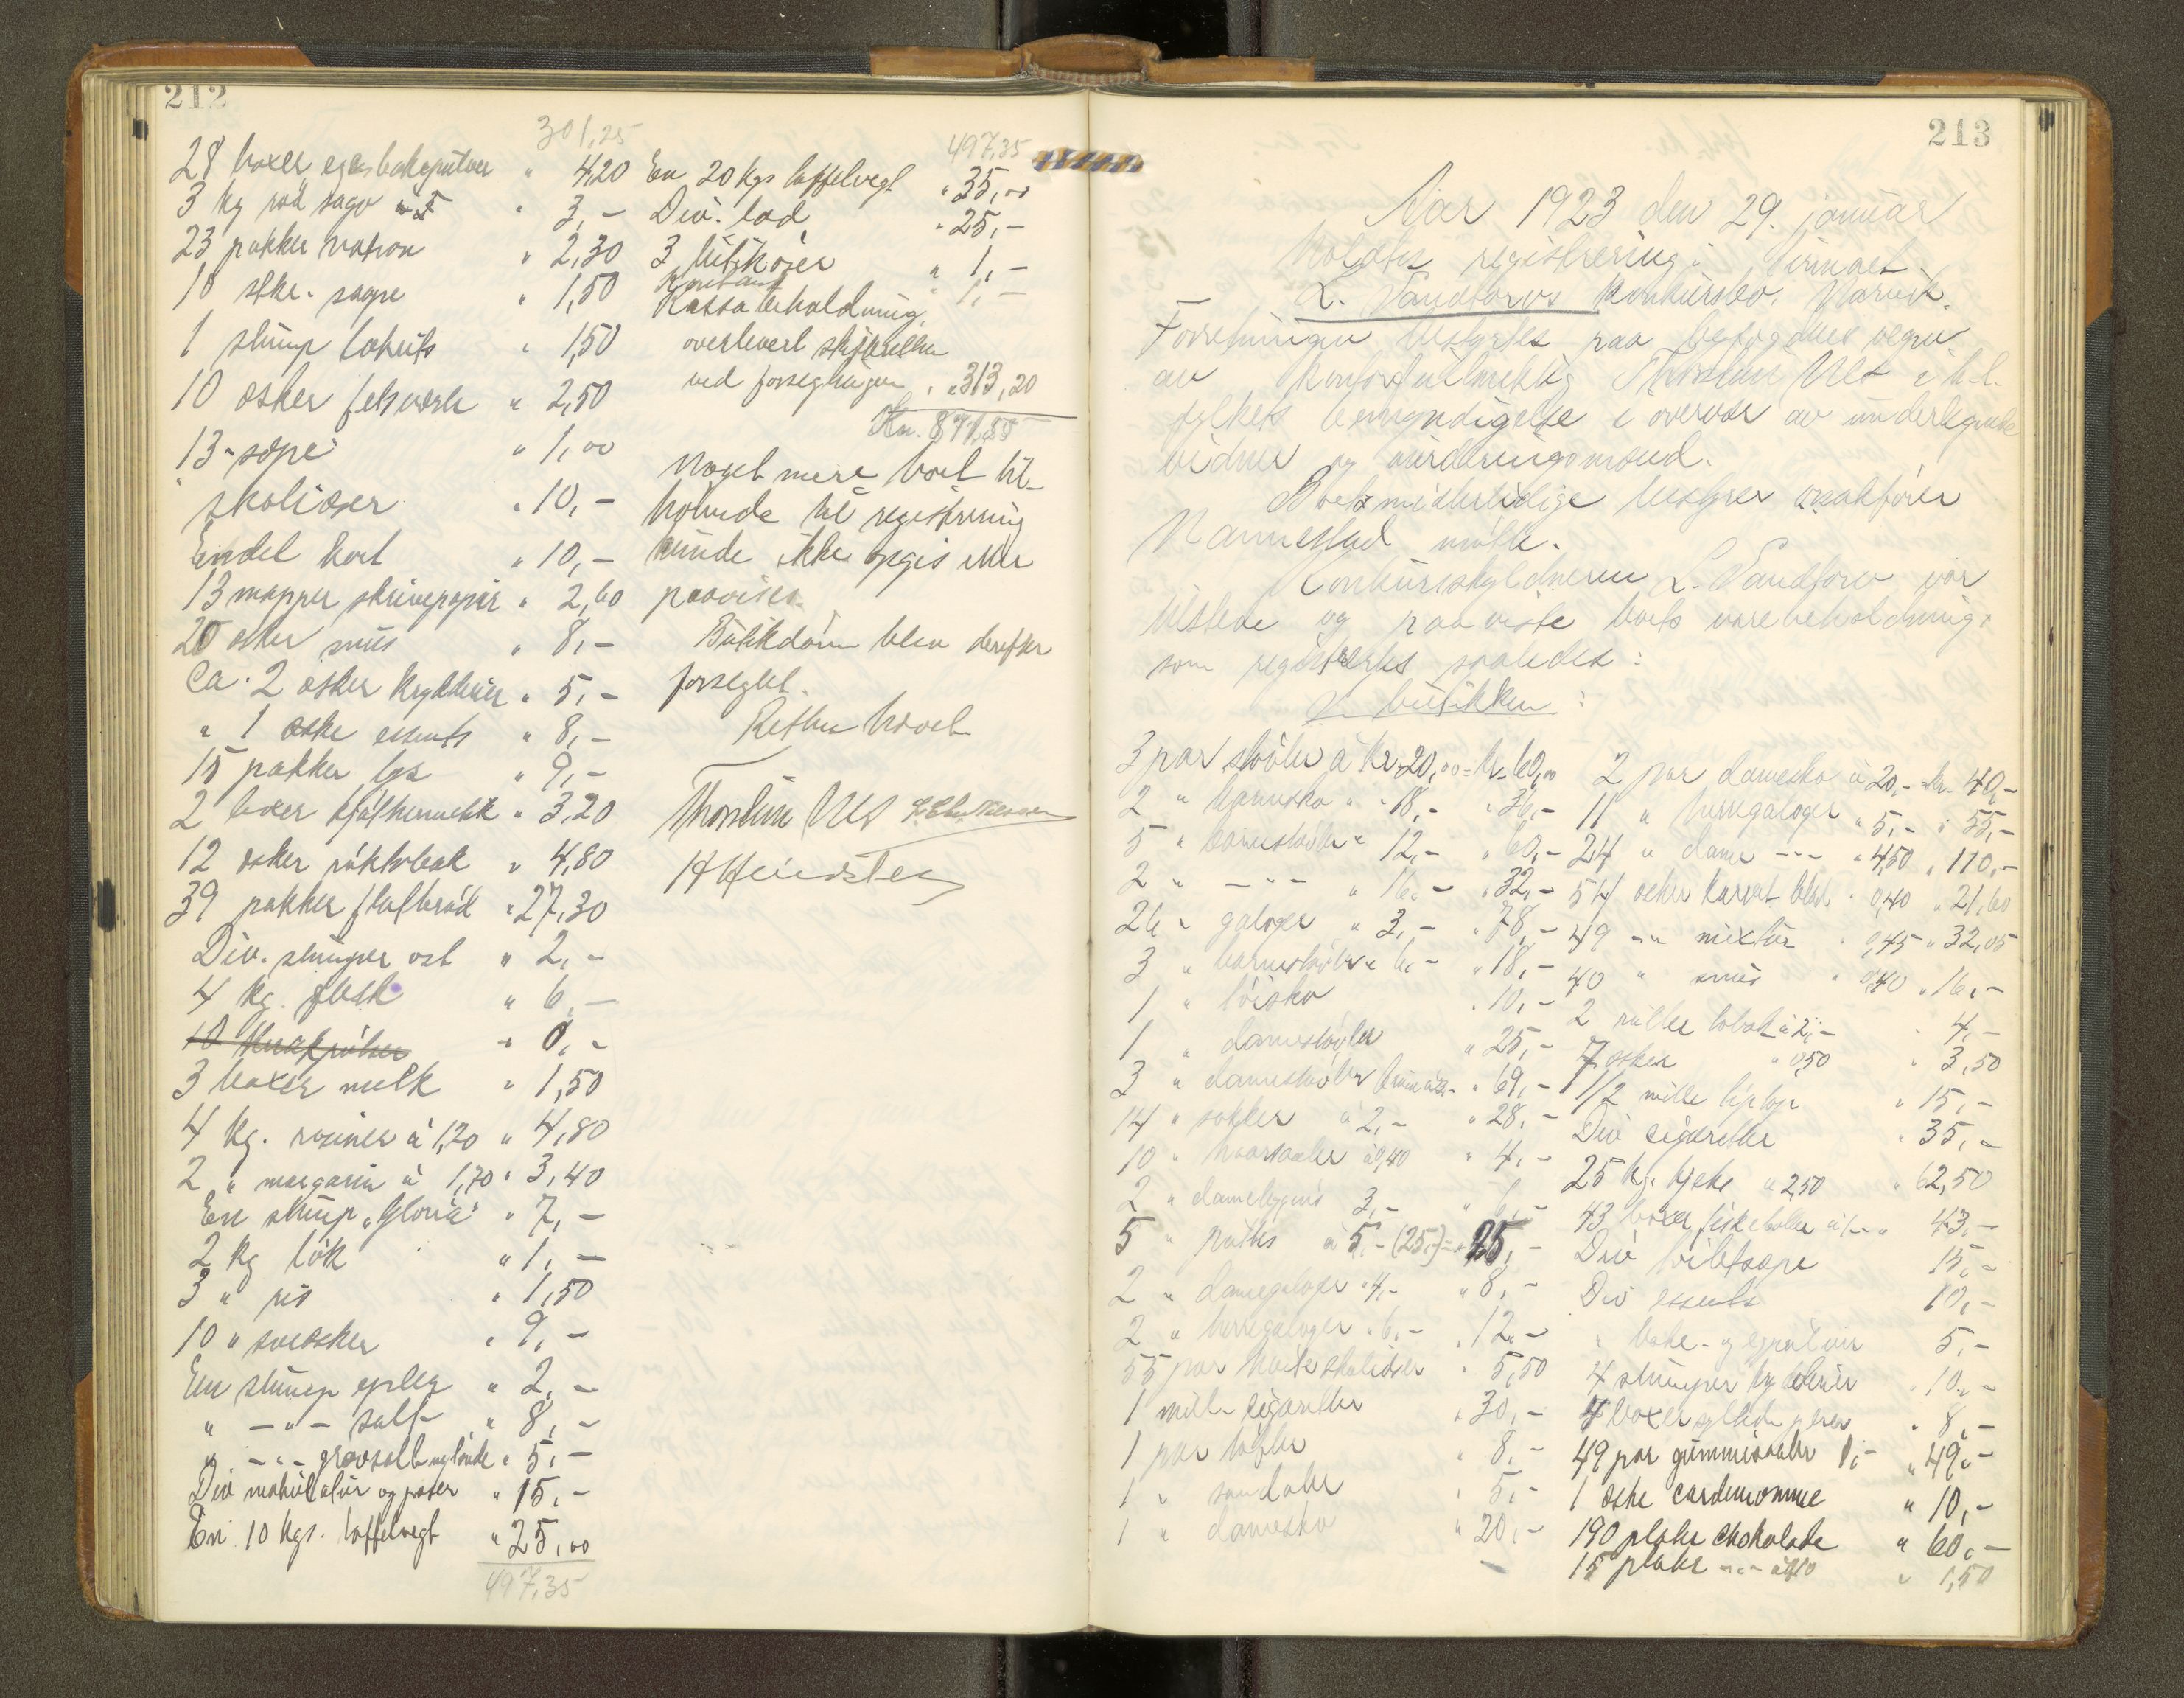 212
301,25
28 boxer eges bakepulver " 4,20
3 kg rød sago " 3,-
23 pakker natron " 2,30
10 stkr. sagre " 1,50
1 stump lakrits " 1,50
10 æsker fetsværte " 2,50
13 - sæpe " 1,00
skolisser " 10,-
Endel kort " 10,-
13 mapper skrivepapir " 2,60
20 esker snus " 8,-
Ca. 2 æsker krydderier " 5,-
" 1 æske essents " 8,-
15 pakker lys " 9,-
2 boxer " 3,20
12 esker röktobak " 4,80
39 pakker flatbröd " 27,30
Div. stumper ost " 2,-
4 kg. flesk " 6,-
10 " 0,-
3 boxer melk " 1,50
4 kg. rosiner à 1,20 " 4,80
2 " margarin à 1,70 " 3,40
En stump "Gloria" " 7,-
2 kg lök " 1,-
3 " ris " 1,50
10 " svedsker " 9,-
En stump epler " 2,-
" -"- salt " 8,-
" -"- grovsalt " 5,-
Div makulatur og poser " 15,-
En 10 kgs. taffelvegt " 25,00
497,35
497,35
En 20 kgs taffelvegt " 35,00
Div. lod " 25,-
3 " 1,-
Kontant " 1,-
Kassabeholdning
overlevert skifteretten
ved forseglingen " 313,20
Kr. 871,55
Noget mere boet til-
hörende til registrering
kunde ikke opgis eller
paavises.
Butikdören blev derefter
forseglet.
Retten hævet
Thorstein
213
Aar 1923 den 29. januar
holdtes registrering i firmaet
L. Sandtorvs konkursbo, Narvik.
Forretningen bestyrtes paa byfogdens vegne
av kontorfuldmektig Thorstein i h.t.
fylkets bemyndigelse i overvær av undertegnede
vidner og vurderingsmænd.
Boets midlertidige bestyrer sakförer
Nannestad mötte.
Konkursskyldneren L. Sandtorv var
tilstede og paaviste boets varebeholdning,
som registrertes saaledes:
I butikken:
3 par stövler à kr. 20,00 = kr. 60,00
2 " " 18,- " 36,-
5 " barnestövler " 12,- " 60,-
2 " -"- " 16,- " 32,-
26 " galoger " 3,- " 78,-
3 " barnestövler " 6,- " 18,-
1 " töisko " 10,-
1 " damestövler " 25,-
3 " damestövler brune à 23,- " 69,-
14 " sokker à 2,- " 28,-
10 " haarsaaler à 0,40 " 4,-
2 " 3,- " 6,-
5 " à 5,- (25,-) = " 25,-
2 " damegaloger " 4,- " 8,-
2 " herregaloger " 6,- " 12,-
55 par hvite skolisser " 5,50
1 mille cigaretter " 30,-
1 par töfler " 8,-
1 " sandaler " 5,-
1 " damesko " 20,-
2 par damesko à 20,- kr. 40,-
11 " herregaloger " 5,- " 55,-
24 " dame -"- " 4,50 " 110,-
54 esker karvet blad " 0,40 " 21,60
49 -"- mixtur " 0,45 " 32,05
40 " snus " 0,40 " 16,-
2 ruller tobak à 2,- " 4,-
7 esker " 0,50 " 3,50
1/2 mille tiptop " 15,-
Div cigaretter " 35,-
25 kg. kjeks " 2,50 " 62,50
43 boxer fiskeboller à 1,- " 43,-
Div toiletsæpe 15,-
Div essents 10,-
" bake- og eggpulver 5,-
4 stumper krydderier " 10,-
4 boxer syltede pærer " 8,-
49 par gummisaaler 1,- " 49,-
1 eske cardemomme " 10,-
190 plater chokolade " 60,-
15 plater -"- à 0,10 " 1,50